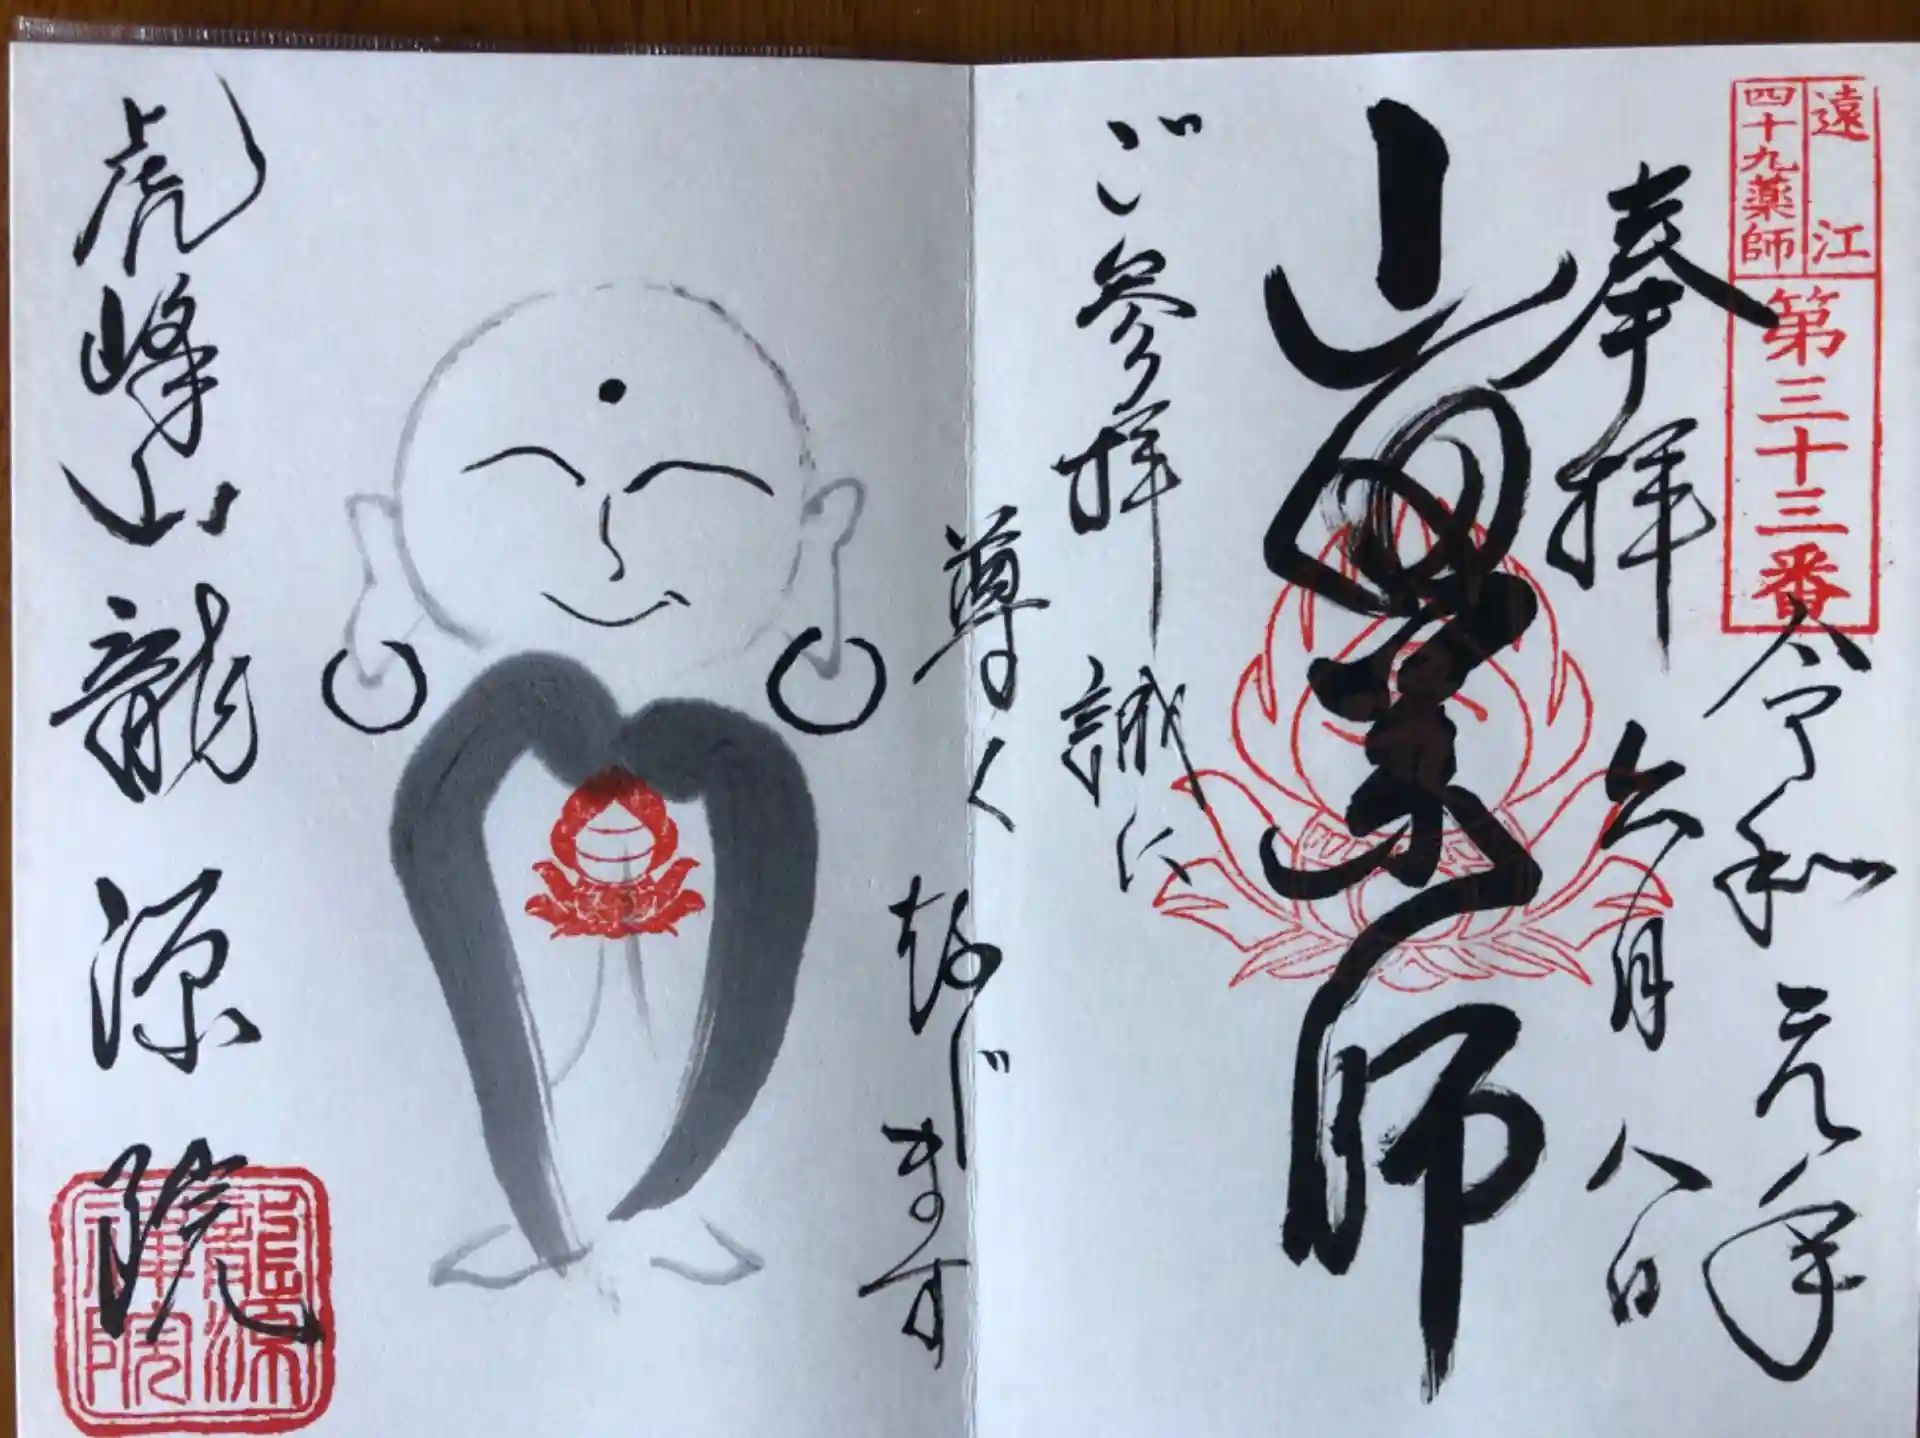 遠江
四十九薬師
第三十三番
令和元年
六月八日
奉拝
山田薬師
ご参拝誠に
尊く存じます
虎峰山龍源院
龍源
禅院